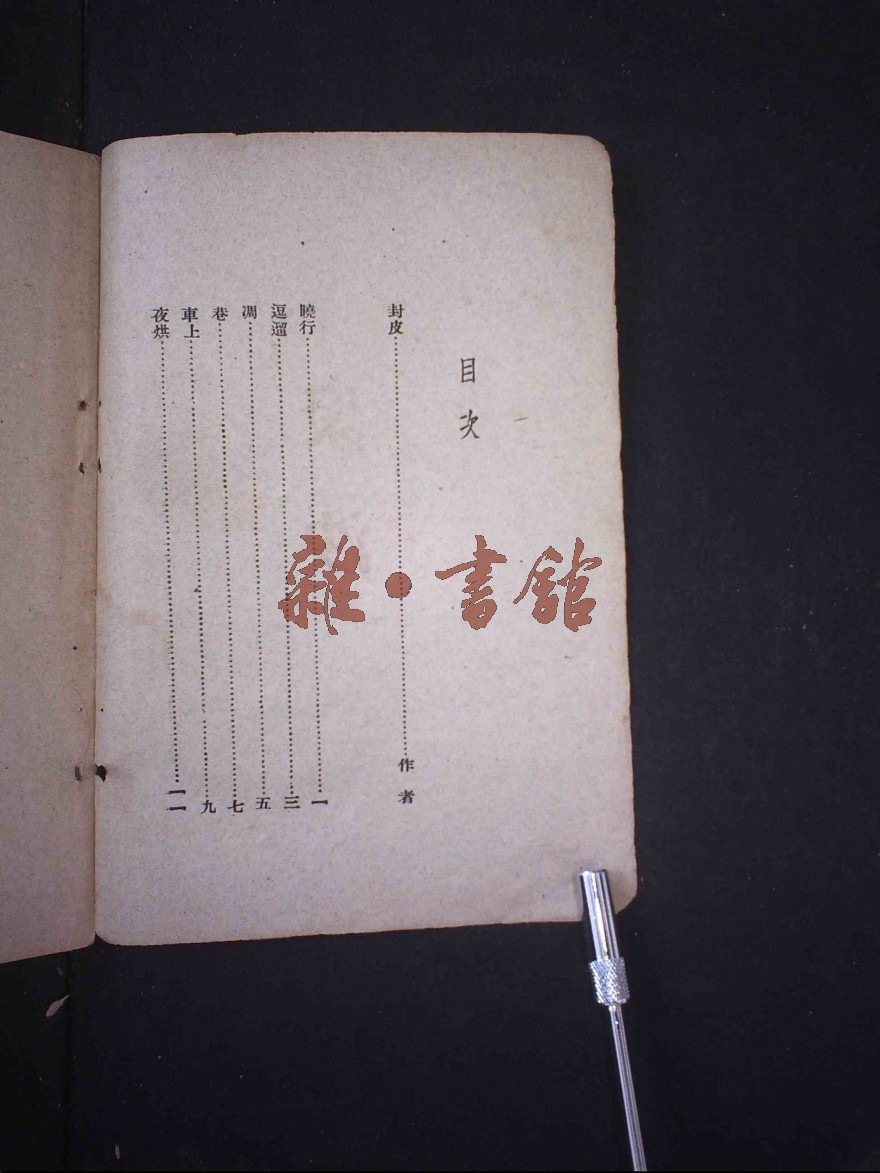 目次
封皮……作者
曉行……一
逗遛……三
凋……五
巷……七
車上……九
夜烘……一一
雜·書館